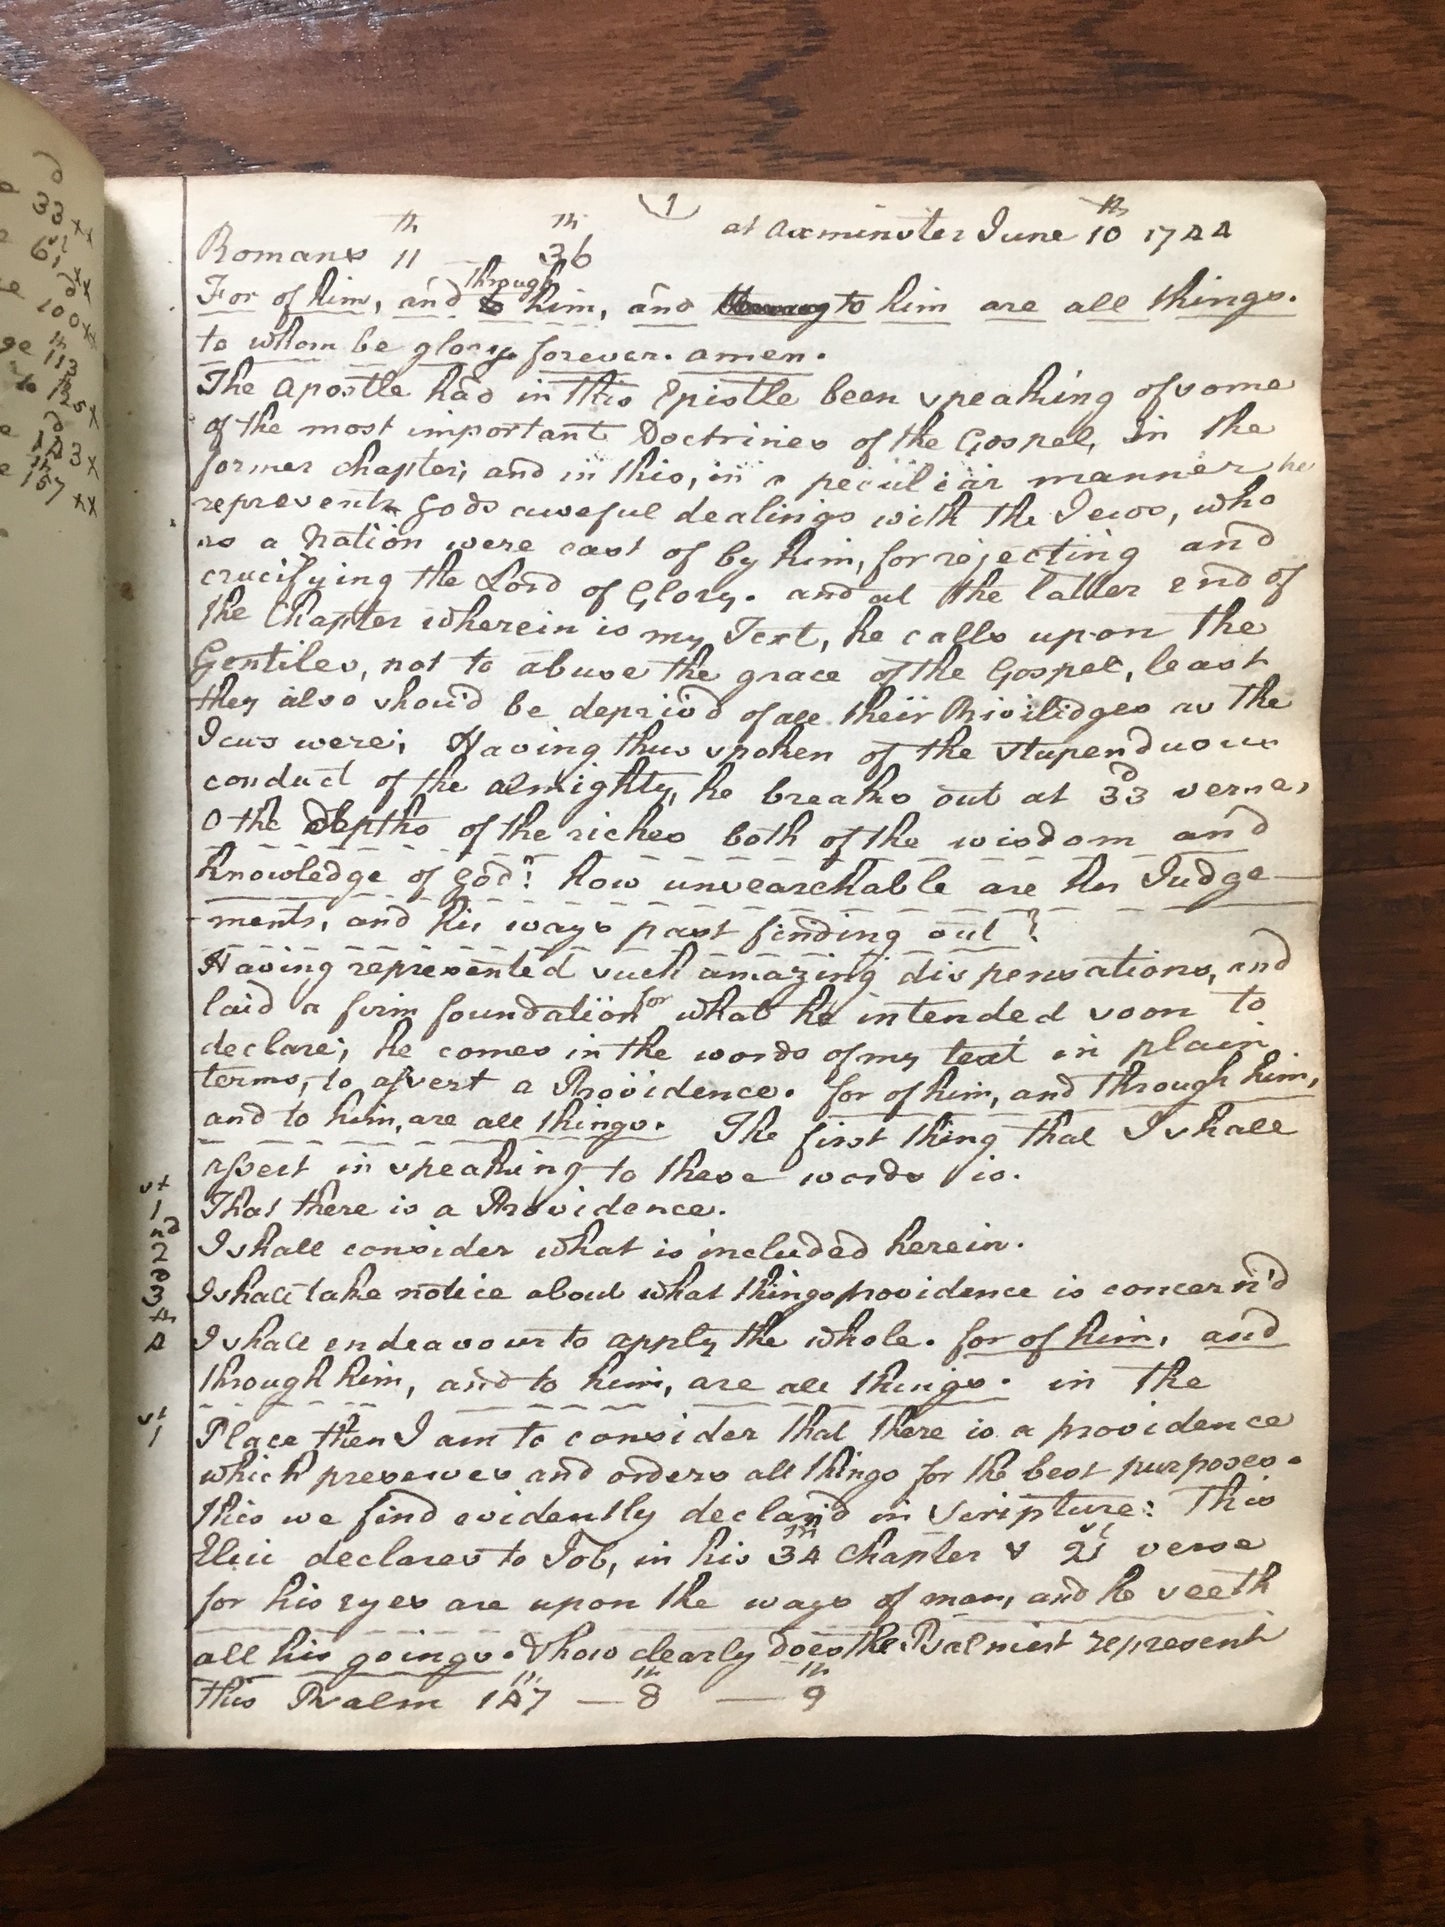 d
33 xx
61 st
d xx
100 xx
th
113
th
125 x
d
143 x
th
167 xx
1
at axminster June 10th 1744
Romans 11th 36th
For of him, and through him, and to him are all things.
to whom be glory forever. amen.
The apostle had in this Epistle been speaking of some
of the most important Doctrines of the Gospel, in the
former chapter; and in this, in a peculiar manner he
represents gods aweful dealings with the Jews, who
as a Nation were cast of by him, for rejecting and
crucifying the Lord of Glory. and at the latter end of
the Chapter wherein is my Text, he calls upon the
Gentiles, not to abuse the grace of the Gospel, least
they also shou'd be depriv'd of all their Privilidges as the
Jews were; Having thus spoken of the stupenduous
conduct of the almighty, he breaks out at 33d verse,
O the depths of the riches both of the wisdom and
knowledge of god! how unsearchable are his Judge-
-ments, and his ways past finding out!
Having represented such amazing dispensations, and
laid a firm foundation for what he intended soon to
declare; he comes in the words of my text in plain
terms, to assert a Providence. for of him, and through him,
and to him, are all things. The first thing that I shall
assert in speaking to these words is.
1st That there is a Providence.
2nd I shall consider what is included herein.
3d I shall take notice about what things providence is concern'd
4th I shall endeavour to apply the whole. for of him, and
through him, and to him, are all things. in the
1st Place then I am to consider that there is a providence
which preserves and orders all things for the best purposes.
this we find evidently declar'd in scripture: This
Eliu declares to Job, in his 34th Chapter & 21st verse
for his eyes are upon the ways of man, and he seeth
all his goings. & how clearly does the Psalmist represent
this Psalm 147th — 8th — 9th